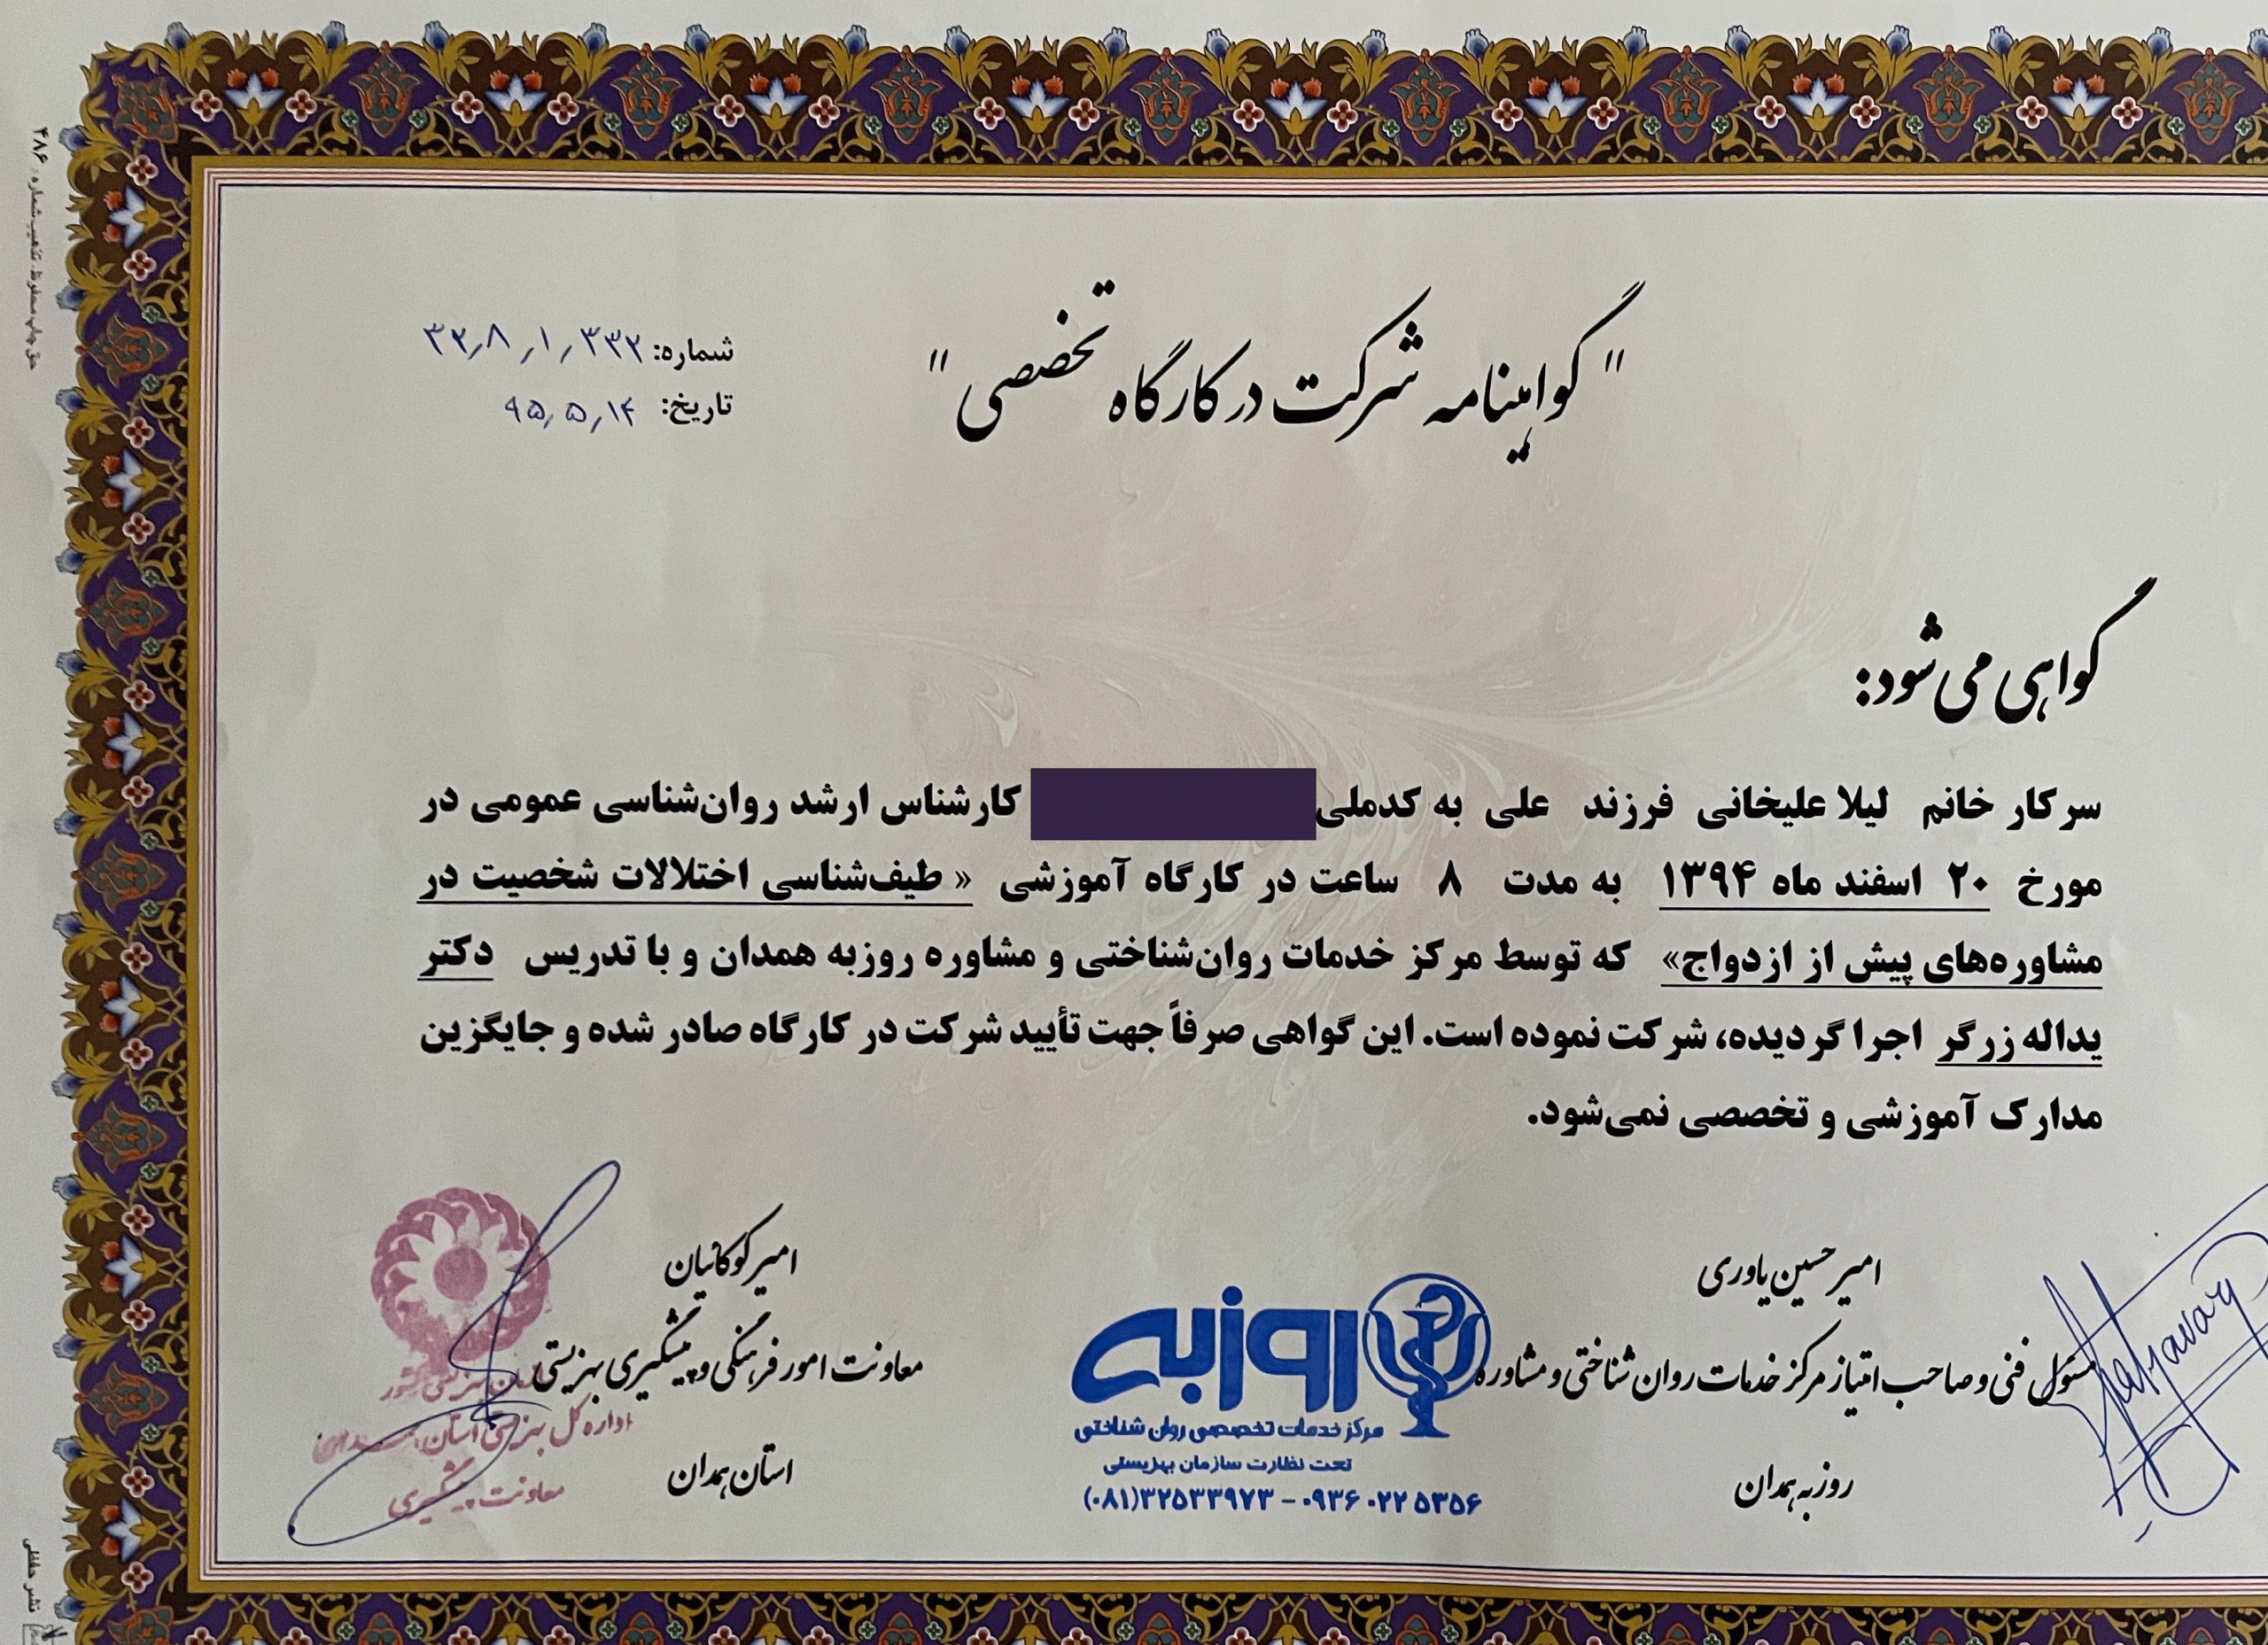 " گواهینامه شرکت در کارگاه تخصصی "
شماره: ۳۲٫۸٫۱٫۳۳۲
تاریخ: ۹۵٫۵٫۱۴
گواهی می‌شود:
سرکار خانم لیلا علیخانی فرزند علی به کدملی کارشناس ارشد روان‌شناسی عمومی در
مورخ ۲۰ اسفند ماه ۱۳۹۴ به مدت ۸ ساعت در کارگاه آموزشی « طیف‌شناسی اختلالات شخصیت در
مشاوره‌های پیش از ازدواج» که توسط مرکز خدمات روان‌شناختی و مشاوره روزبه همدان و با تدریس دکتر
یداله زرگر اجرا گردیده، شرکت نموده است. این گواهی صرفاً جهت تأیید شرکت در کارگاه صادر شده و جایگزین
مدارک آموزشی و تخصصی نمی‌شود.
امیرحسین یاوری
مسئول فنی و صاحب امتیاز مرکز خدمات روان شناختی و مشاوره
روزبه همدان
روزبه
مرکز خدمات تخصصی روان شناختی
تحت نظارت سازمان بهزیستی
(۰۸۱)۳۲۵۳۳۹۷۳ - ۰۹۳۶۰۲۲۵۳۵۶
امیر کوکائیان
معاونت امور فرهنگی و پیشگیری بهزیستی
استان همدان
اداره کل بهزیستی استان همدان
معاونت پیشگیری
حق چاپ محفوظ، تذهیب شماره: ۴۸۶